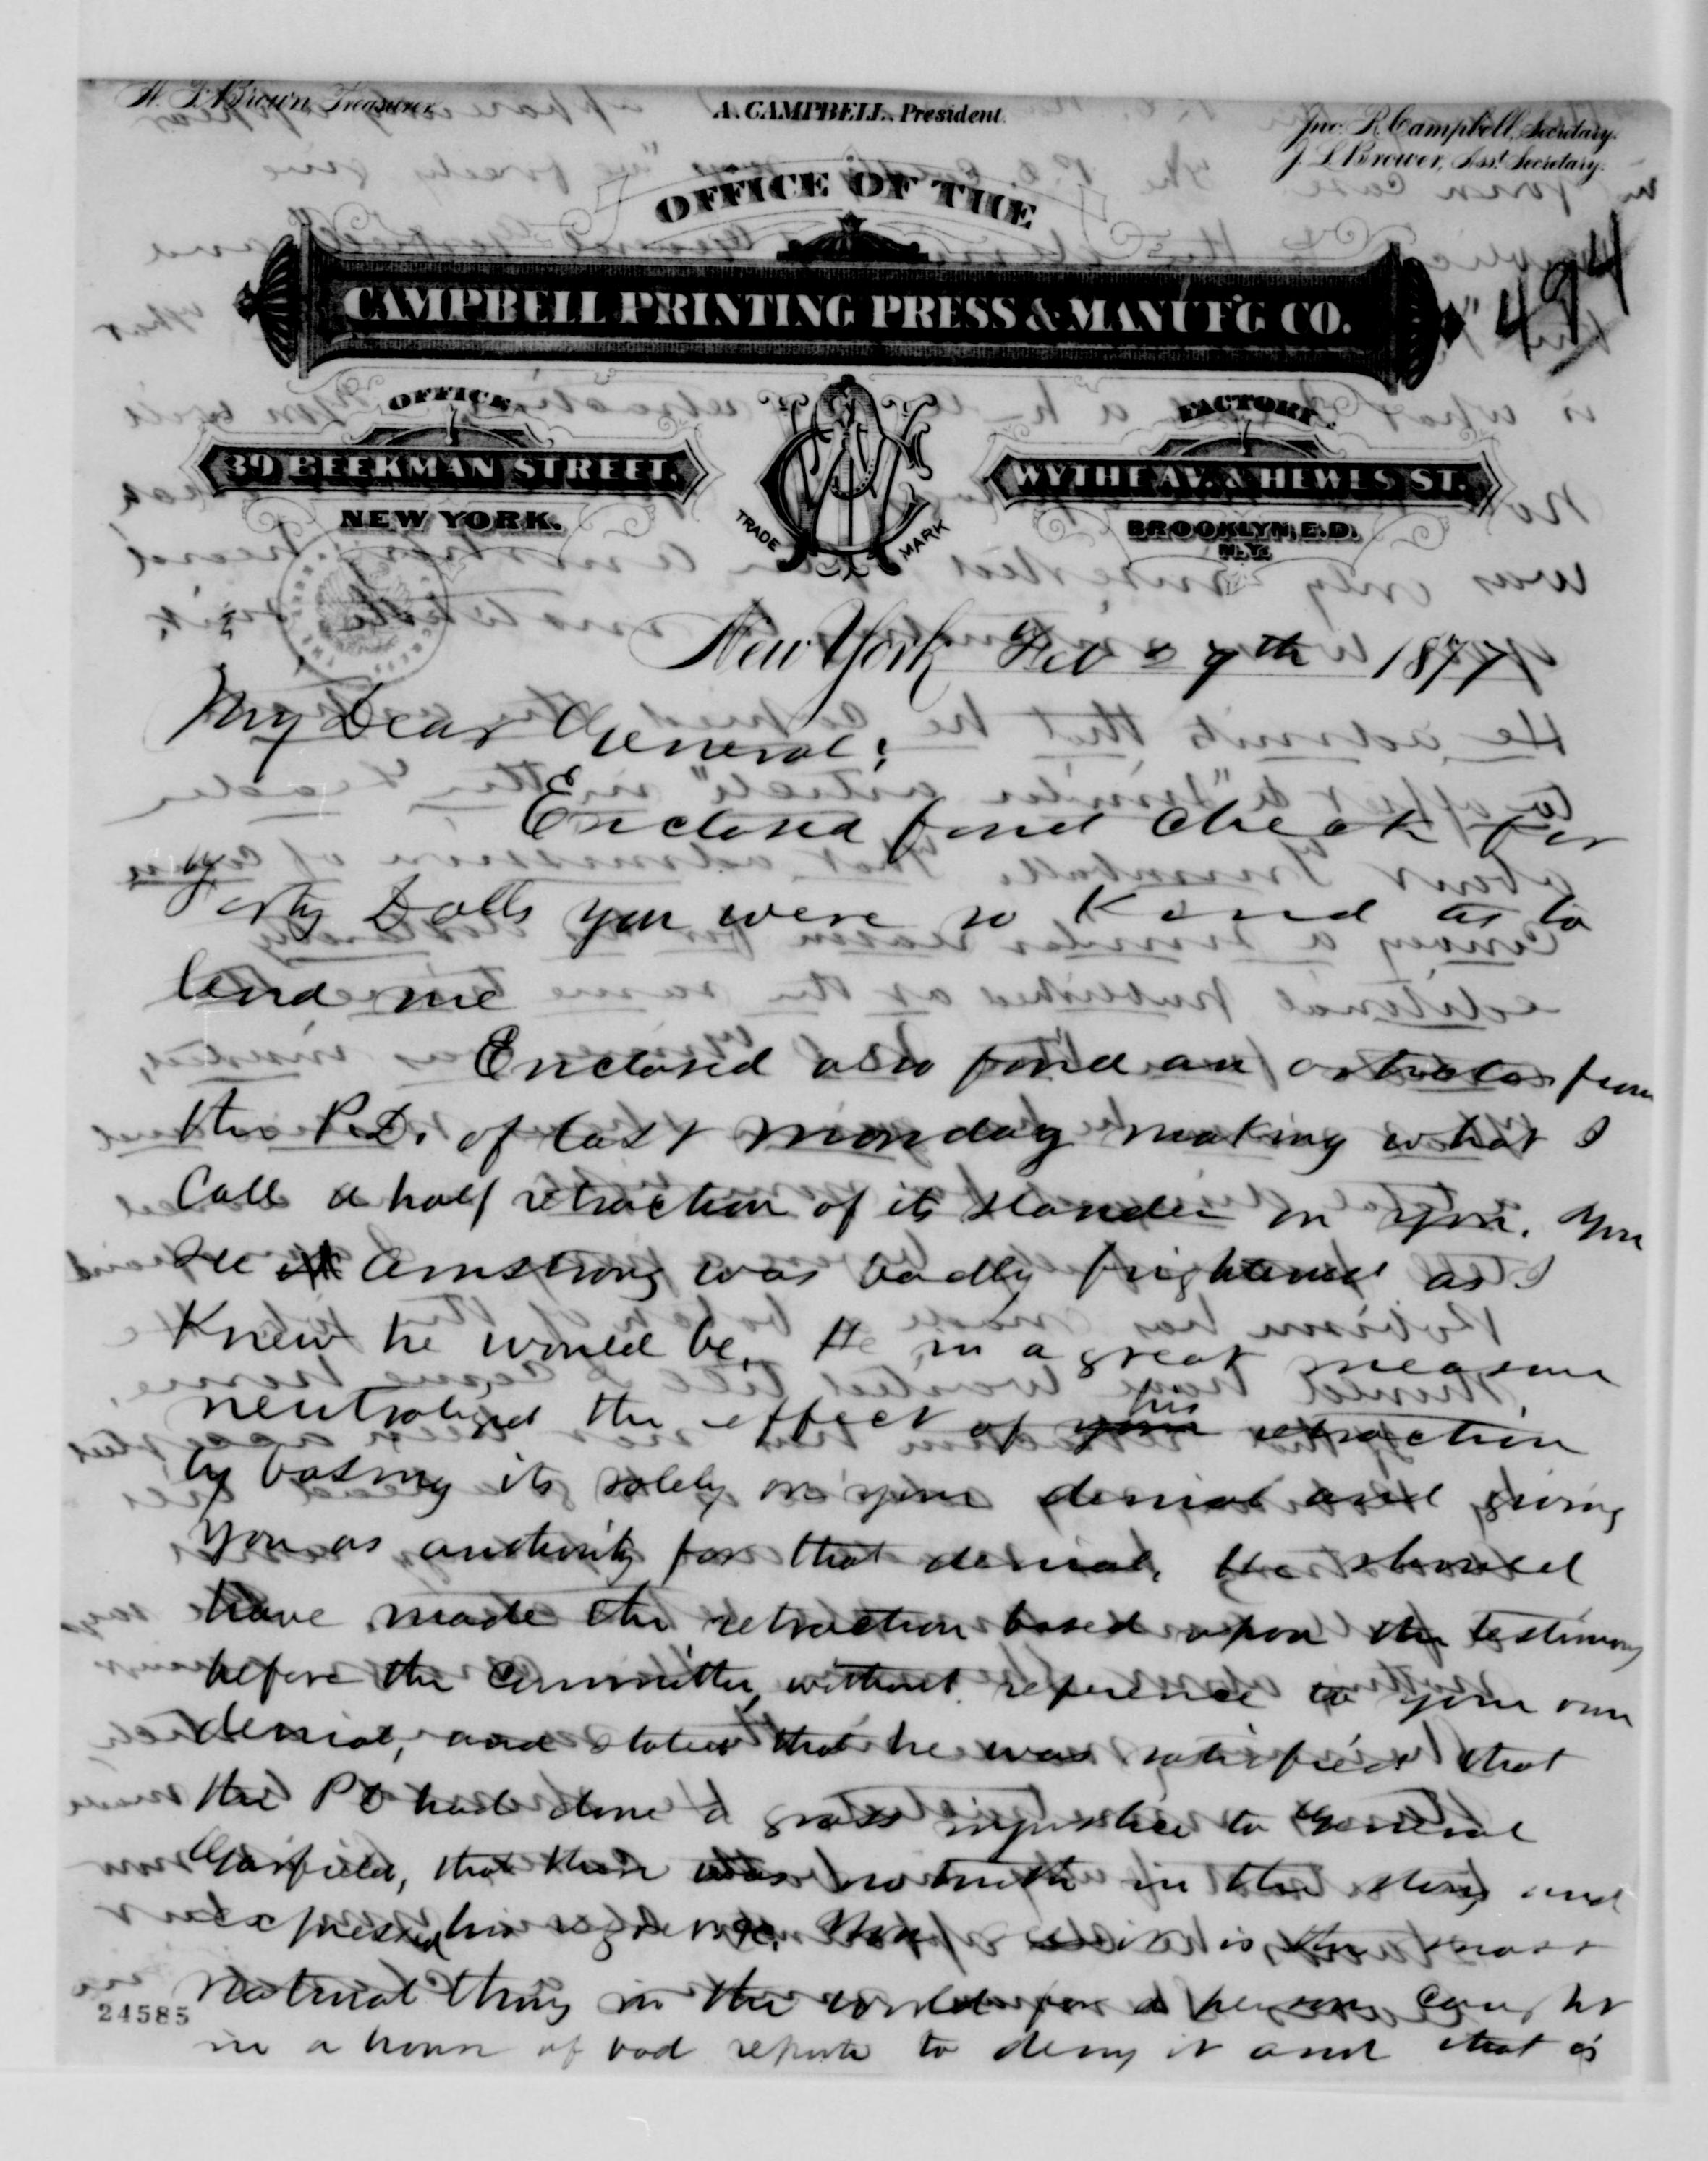 W. T. Brown, Treasurer.
A. CAMPBELL, President.
Jno. R. Campbell, Secretary.
J. L. Brower, Asst. Secretary.
OFFICE OF THE
CAMPBELL PRINTING PRESS & MANUF'G CO.
494
OFFICE,
39 BEEKMAN STREET.
NEW YORK.
TRADE MARK
FACTORY,
WYTHE AV. & HEWES ST.
BROOKLYN, E.D.
N.Y.
New York Feb 27th 1877
My Dear General;
Enclosed find check for
Forty Dolls you were so kind as to
lend me
Enclosed also find an from
the P.D. of last Monday making what I
call a half retraction of its slander on you. You
see Armstrong was badly frightened as I
knew he would be. He in a great measure
neutralized the effect of your his retraction
by basing its solely on your denial and giving
you as authority for that denial. He should
have made the retraction based upon the testimony
before the Committee, without reference to your own
denial, and stated that he was satisfied that
the PD had done a gross injustice to General
Garfield, that there was no truth in the story and
expressed his is the most
natural thing in the world for a person caught
24585
in a house of bad repute to deny it and that is